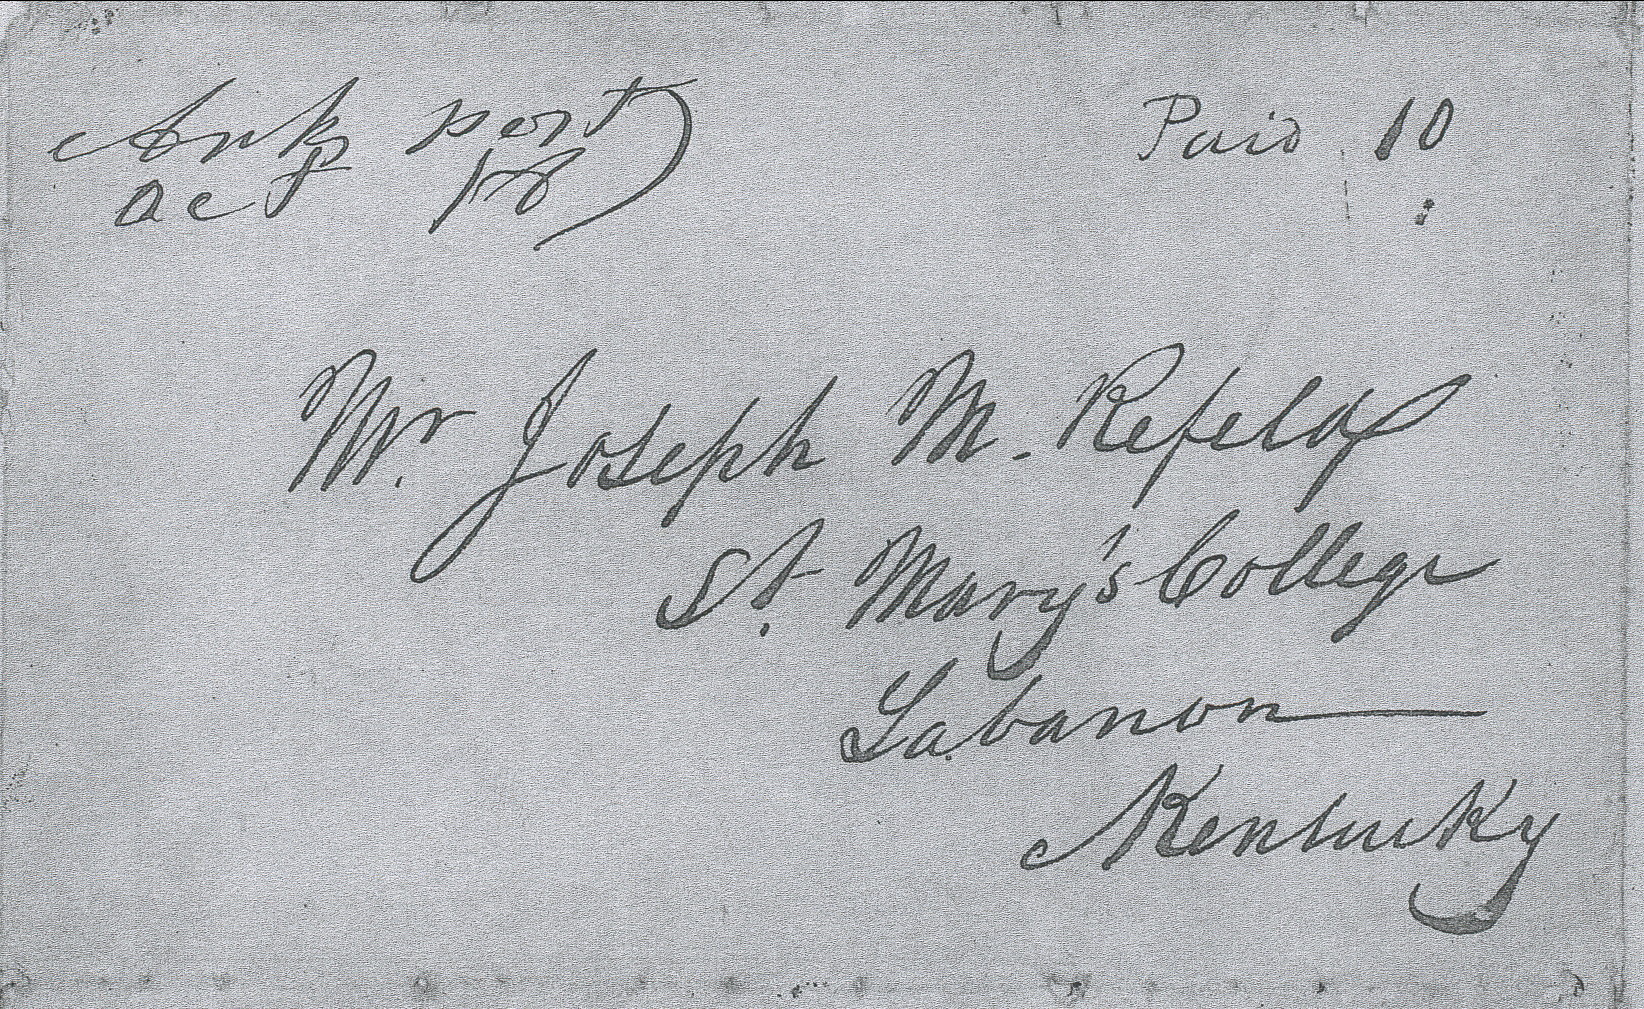 Ark post
Oct 18
Paid 10
Mr. Joseph M. Refeld
St. Mary's College
Labanon
Kentucky